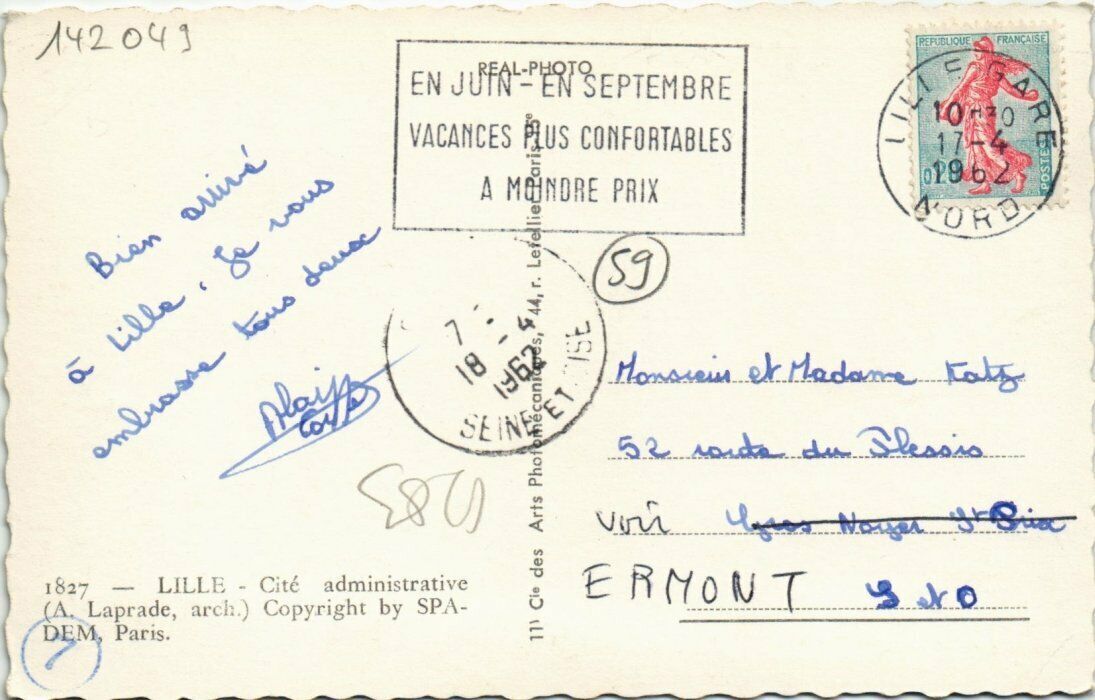 142049
REAL-PHOTO
EN JUIN - EN SEPTEMBRE
VACANCES PLUS CONFORTABLES
A MOINDRE PRIX
REPUBLIQUE FRANÇAISE
POSTES
LILLE GARE
10H30
17-4
1962
NORD
Bien arrivé
à Lille. Je vous
embrasse tous deux
Alain
59
18 - 4
1962
SEINE ET OISE
Monsieur et Madame Katz
52 route du Plessis
voir Gros Noyer St Prix
ERMONT S et O
1827 — LILLE - Cité administrative
(A. Laprade, arch.) Copyright by SPA-
DEM, Paris.
7
Cie des Arts Photomécaniques, 44, r. Letellier Paris-15e